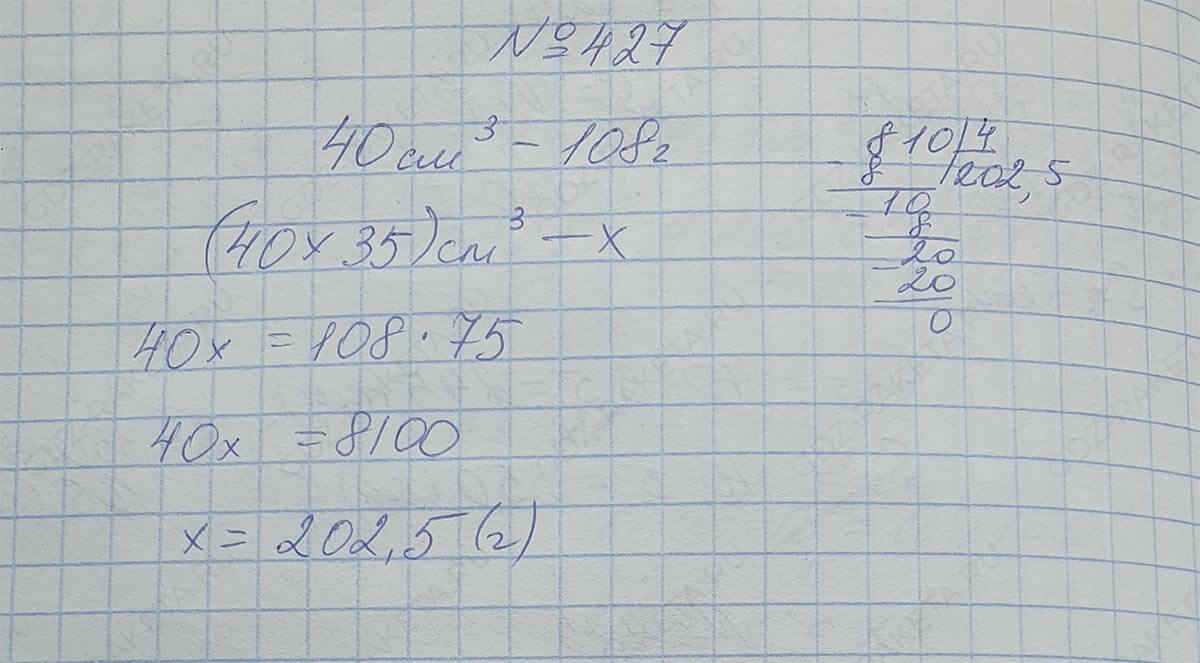 №427
40см³ - 108г
(40x 35)см³ - x
40x = 108·75
40x = 8100
x = 202,5 (г)
810|4
-8 |202,5
10
-8
20
-20
0